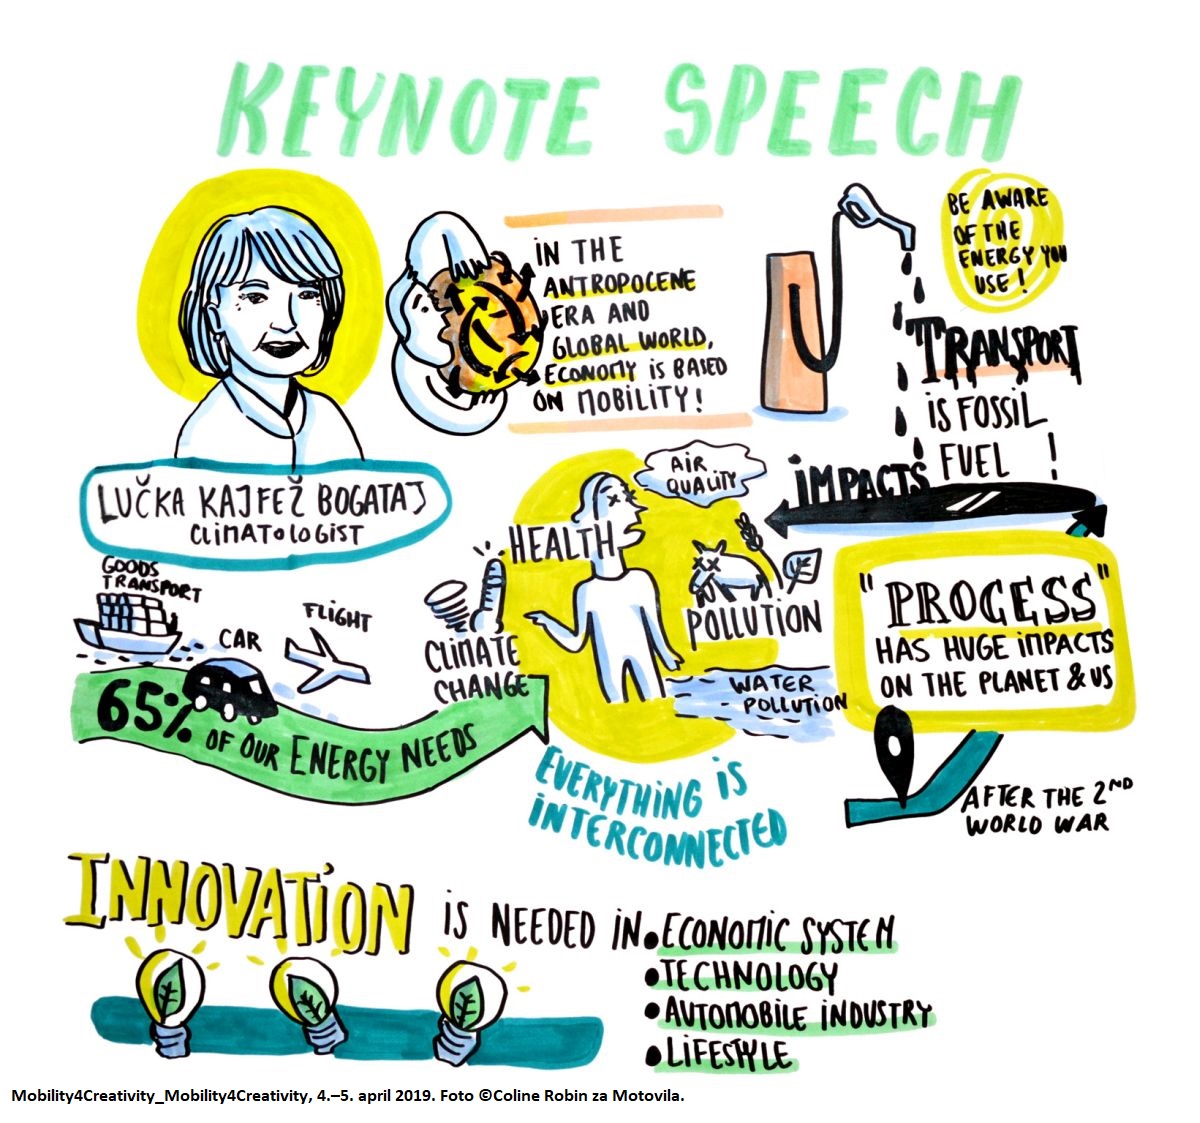 KEYNOTE SPEECH
LUČKA KAJFEŽ BOGATAJ
CLIMATOLOGIST
IN THE
ANTROPOCENE
ERA AND
GLOBAL WORLD,
ECONOMY IS BASED
ON MOBILITY!
BE AWARE
OF THE
ENERGY YOU
USE!
TRANSPORT
IS FOSSIL
FUEL !
IMPACTS
AIR
QUALITY
HEALTH
POLLUTION
WATER
POLLUTION
CLIMATE
CHANGE
GOODS
TRANSPORT
CAR
FLIGHT
65% OF OUR ENERGY NEEDS
EVERYTHING IS
INTERCONNECTED
"PROGESS"
HAS HUGE IMPACTS
ON THE PLANET & US
AFTER THE 2ND
WORLD WAR
INNOVATION IS NEEDED IN
• ECONOMIC SYSTEM
• TECHNOLOGY
• AUTOMOBILE INDUSTRY
• LIFESTYLE
Mobility4Creativity_Mobility4Creativity, 4.–5. april 2019. Foto ©Coline Robin za Motovila.